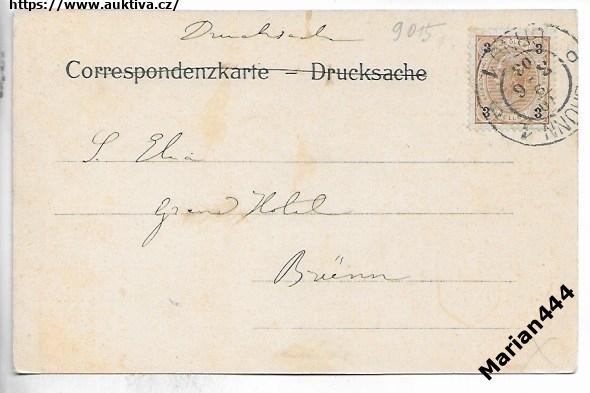 https://www.auktiva.cz/
Drucksache
9015
Correspondenzkarte – Drucksache
3 3
3 3
HELLER
BRÜNN
S. Elia
Grand Hotel
Brünn
Marian444